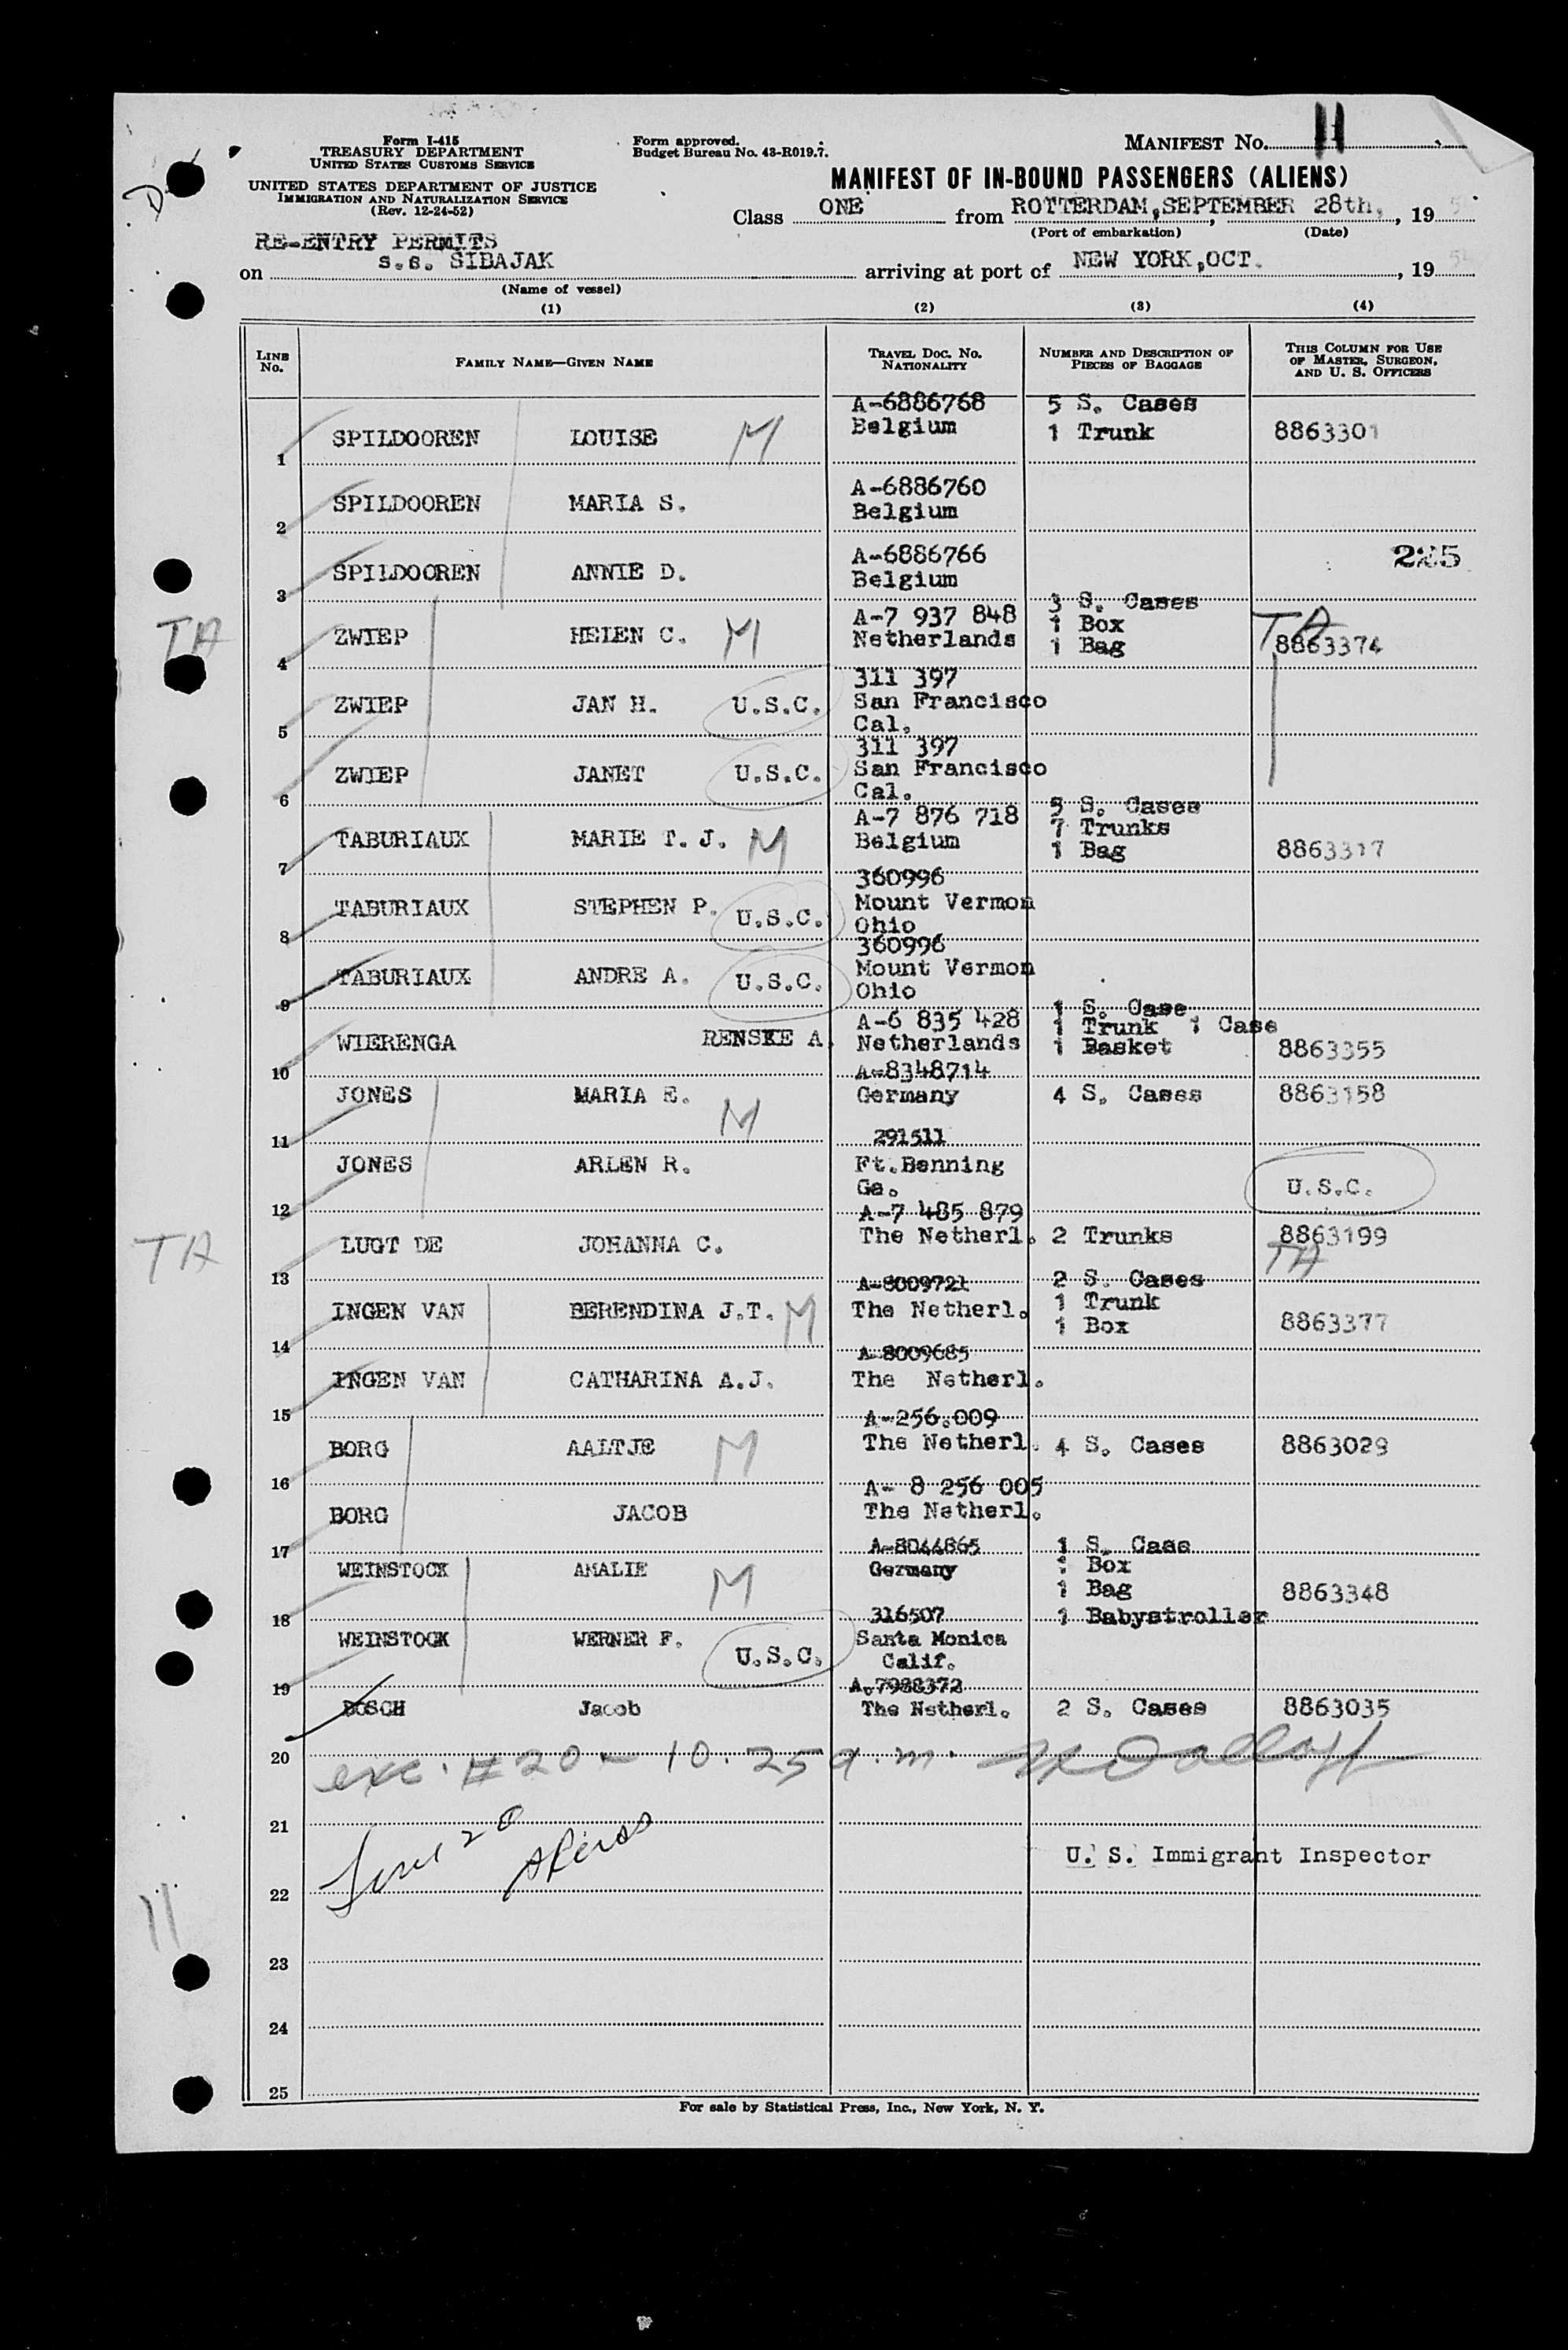 Form I-415
TREASURY DEPARTMENT
UNITED STATES CUSTOMS SERVICE
UNITED STATES DEPARTMENT OF JUSTICE
IMMIGRATION AND NATURALIZATION SERVICE
(Rev. 12-24-52)
Form approved.
Budget Bureau No. 43-R019.7.
MANIFEST No. 11
MANIFEST OF IN-BOUND PASSENGERS (ALIENS)
Class ONE from ROTTERDAM, SEPTEMBER 28th, , 19 54
(Port of embarkation) (Date)
RE-ENTRY PERMITS
on s.s. SIBAJAK arriving at port of NEW YORK, OCT. , 19 54
(Name of vessel)
(1) (2) (3) (4)
LINE No. FAMILY NAME—GIVEN NAME TRAVEL DOC. No. NATIONALITY NUMBER AND DESCRIPTION OF PIECES OF BAGGAGE THIS COLUMN FOR USE OF MASTER, SURGEON, AND U. S. OFFICERS
1 SPILDOOREN LOUISE M A-6886768 Belgium 5 S. Cases 1 Trunk 8863301
2 SPILDOOREN MARIA S. A-6886760 Belgium
3 SPILDOOREN ANNIE D. A-6886766 Belgium 225
TA 4 ZWIEP HELEN C. M A-7 937 848 Netherlands 3 S. Cases 1 Box 1 Bag TA 8863374
5 ZWIEP JAN H. U.S.C. 311 397 San Francisco Cal.
6 ZWIEP JANET U.S.C. 311 397 San Francisco Cal.
7 TABURIAUX MARIE T. J. M A-7 876 718 Belgium 5 S. Cases 7 Trunks 1 Bag 8863317
8 TABURIAUX STEPHEN P. U.S.C. 360996 Mount Vermon Ohio
9 TABURIAUX ANDRE A. U.S.C. 360996 Mount Vermon Ohio
10 WIERENGA RENSKE A. A-6 835 428 Netherlands 1 S. Case 1 Trunk 1 Case 1 Basket 8863355
11 JONES MARIA E. M A-8348714 Germany 4 S. Cases 8863158
12 JONES ARLEN R. 291511 Ft.Benning Ga. U.S.C.
TA 13 LUGT DE JOHANNA C. A-7 485 879 The Netherl. 2 Trunks 8863199 TA
14 INGEN VAN BERENDINA J.T. M A-8009721 The Netherl. 2 S. Cases 1 Trunk 1 Box 8863377
15 INGEN VAN CATHARINA A.J. A-8009685 The Netherl.
16 BORG AALTJE M A-256.009 The Netherl. 4 S. Cases 8863029
17 BORG JACOB A- 8 256 005 The Netherl.
18 WEINSTOCK AMALIE M A-8044865 Germany 1 S. Case 1 Box 1 Bag 1 Babystroller 8863348
19 WEINSTOCK WERNER F. U.S.C. 316507 Santa Monica Calif.
20 BOSCH Jacob A.7988372 The Netherl. 2 S. Cases 8863035
exc. #20 - 10.25 a.m.
21
U. S. Immigrant Inspector
22
11
23
24
25
For sale by Statistical Press, Inc., New York, N. Y.